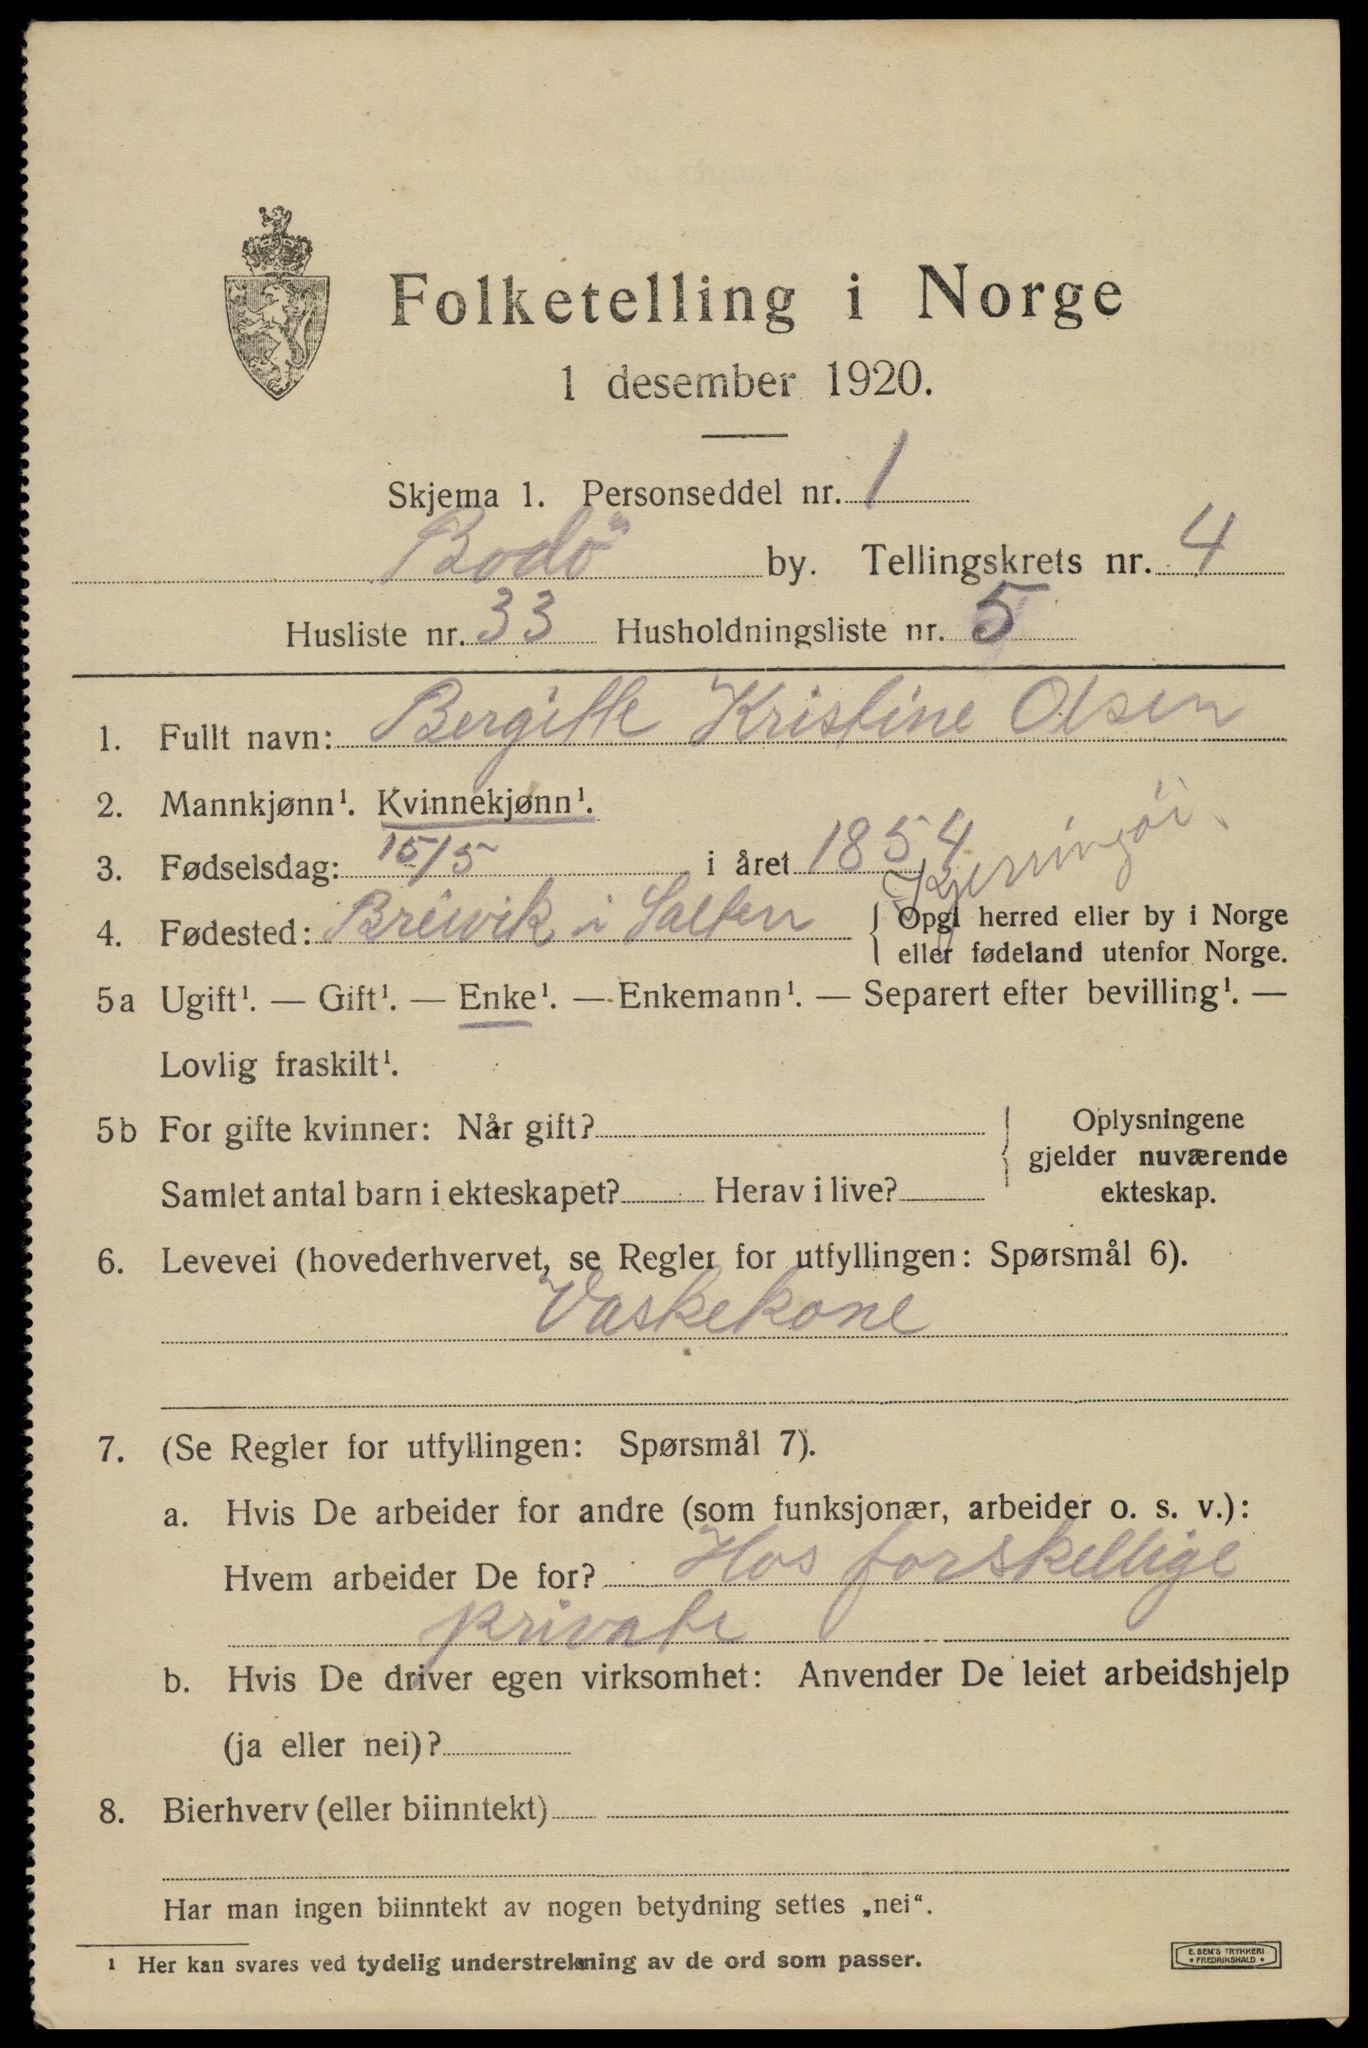 Folketelling i Norge
1 desember 1920.
Skjema 1. Personseddel nr. 1
Bodö by. Tellingskrets nr. 4
Husliste nr. 33 Husholdningsliste nr. 5
1. Fullt navn: Bergitte Kristine Olsen
2. Mannkjønn¹. Kvinnekjønn¹.
3. Fødselsdag: 15/5 i året 1854
Kjerringöi
4. Fødested: Breivik i Salten { Opgi herred eller by i Norge
eller fødeland utenfor Norge.
5a Ugift¹. — Gift¹. — Enke¹. — Enkemann¹. — Separert efter bevilling¹. —
Lovlig fraskilt¹.
5b For gifte kvinner: Når gift? { Oplysningene
gjelder nuværende
Samlet antal barn i ekteskapet? Herav i live? ekteskap.
6. Levevei (hovederhvervet, se Regler for utfyllingen: Spørsmål 6).
Vaskekone
7. (Se Regler for utfyllingen: Spørsmål 7).
a. Hvis De arbeider for andre (som funksjonær, arbeider o. s. v.):
Hvem arbeider De for? Hos forskellige
private
b. Hvis De driver egen virksomhet: Anvender De leiet arbeidshjelp
(ja eller nei)?
8. Bierhverv (eller biinntekt)
Har man ingen biinntekt av nogen betydning settes „nei“.
¹ Her kan svares ved tydelig understrekning av de ord som passer.
E. SEM'S TRYKKERI
* FREDRIKSHALD *